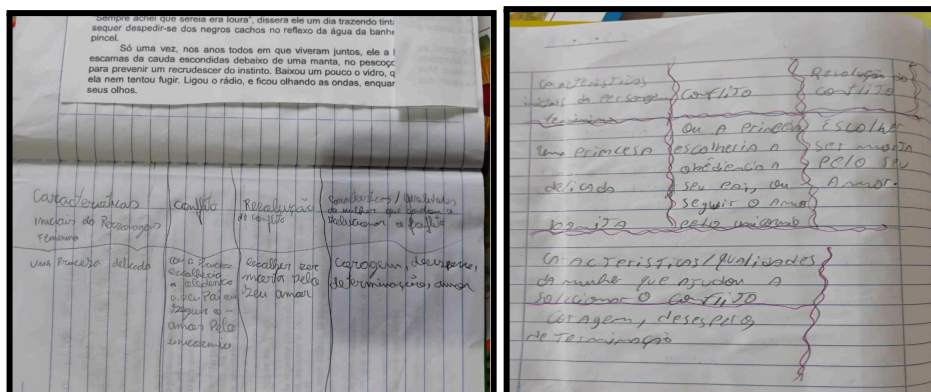 Sempre achei que sereia era loura", dissera ele um dia trazendo tint
sequer despedir-se dos negros cachos no reflexo da água da banhe
pincel.
Só uma vez, nos anos todos em que viveram juntos, ele a l
escamas da cauda escondidas debaixo de uma manta, no pescoço
para prevenir um recrudescer do instinto. Baixou um pouco o vidro, q
ela nem tentou fugir. Ligou o rádio, e ficou olhando as ondas, enquan
seus olhos.
Características
iniciais do Personagem
Feminino
conflito
Resolução
do conflito
Características / Qualidades
da mulher que ajudam a
solucionar o conflito
uma Princesa delicada
ou a Princesa
escolheria
a obediência
a seu Pai ou
seguir o
amor Pelo
unicornio
escolher ser
morta pelo
seu amor
coragem, desespero,
determinação, amor
Características
iniciais da personagem
feminino
conflito
Resolução do
conflito
uma princesa
delicada
bonita
Ou a princesa
escolheria a
obediência a
seu pai, ou
seguir o Amor
pelo unicornio
Escolher
ser morta
pelo seu
Amor.
Características/qualidades
da mulher que ajudam a
solucionar o conflito
coragem, desespero,
determinação